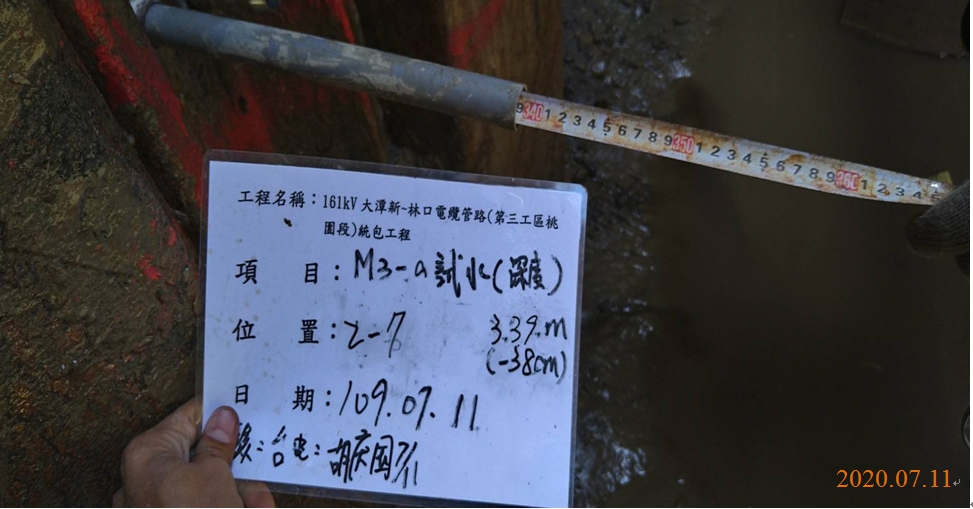 9 340 1 2 3 4 5 6 7 8 9 350 1 2 3 4 5 6 7 8 9 360 1 2 3 4
工程名稱：161kV 大潭新~林口電纜管路(第三工區桃
園段)統包工程
項 目：M3-a試水(深度)
位 置：2-7 3.39.m
(-38cm)
日 期：109.07.11
台電：胡慶國7/11
2020.07.11